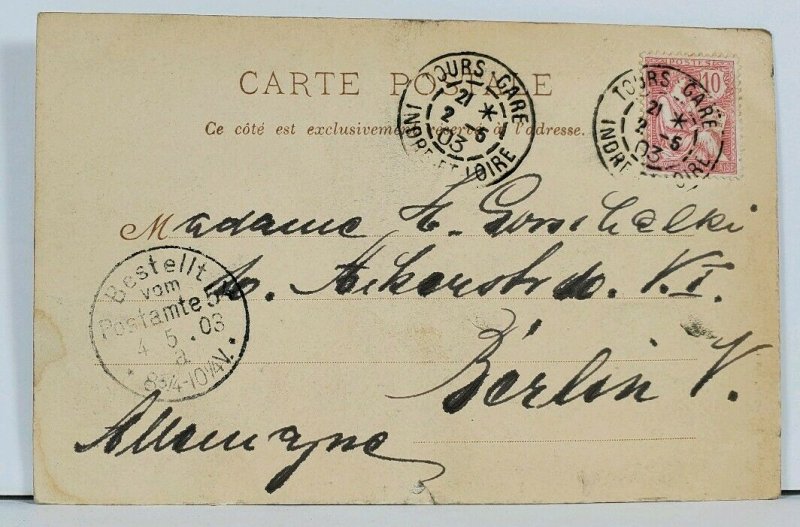 CARTE POSTALE
Ce côté est exclusivement réservé à l'adresse.
TOURS-GARE
21 *
2 - 5
03
INDRE-ET-LOIRE
POSTES
10
TOURS-GARE
21 *
2 - 5
03
INDRE-ET-LOIRE
Madame H.
VI.
Berlin V.
Allemagne
Bestellt
vom
Postamte
4 5 . 03
a
* 8 3/4-10 1/4 V. *